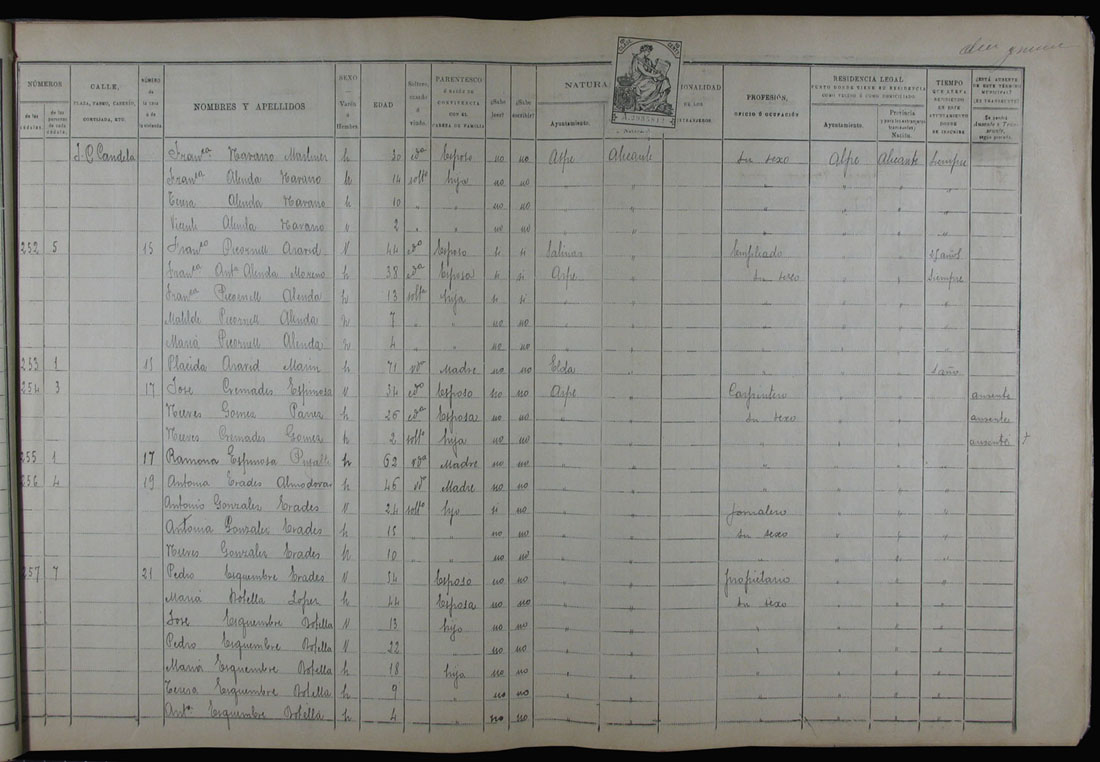 NÚMEROS
de las cédulas.
de las personas de cada cédula.
CALLE,
PLAZA, PASEO, CASERÍO, CORTIJADA, ETC.
NÚMERO
NOMBRES Y APELLIDOS
SEXO
Varón
ó
Hembra
EDAD
Soltero, casado ó viudo.
PARENTESCO
Ó RAZÓN DE
CONVIVENCIA
CON EL
CABEZA DE FAMILIA
¿Sabe leer?
¿Sabe escribir?
NATURA
Ayuntamiento.
IONALIDAD
DE LOS
PROFESIÓN,
OFICIO Ó OCUPACIÓN
RESIDENCIA LEGAL
PUNTO DONDE TIENE SU RESIDENCIA
COMO VECINO Ó COMO DOMICILIADO
Ayuntamiento.
Provincia
TIEMPO
J. P. Candela Franca Navarro Martinez h 50 cda Esposa no no Aspe Alicante Su sexo Aspe Alicante Siempre
Franca Alenda Navarro h 14 solta hija no no " " " " " "
Teresa Alenda Navarro h 10 " " no no " " " " " "
Vicente Alenda Navarro v 2 " " no no " " " " " "
252 5 15 Franco Picornell Aravid V 44 cdo Esposo si si Salinas " Empleado " " años
Franca Anta Alenda Moreno h 38 cda Esposa si si Aspe " Su sexo " " Siempre
Franca Picornell Alenda h 13 solta hija si si " " " " " "
Matilde Picornell Alenda h 7 " " no no " " " " " "
Maria Picornell Alenda h 4 " " no no " " " " " "
253 1 15 Placida Aravid Marin h 71 vda Madre no no Elda " " " " 1 año
254 3 17 Jose Cremades Espinosa V 34 cdo Esposo no no Aspe " Carpintero " " " ausente
Nieves Gomez h 26 cda Esposa no no " " Su sexo " " " ausente
Nieves Cremades Gomez h 2 solta hija no no " " " " " " ausente +
255 1 17 Ramona Espinosa h 62 vda Madre no no " " " " " "
256 4 19 Antonia Erades Almodovar h 46 vda Madre no no " " " " " "
Antonio Gonzalez Erades V 24 solto hijo si no " " Jornalero " " "
Antonia Gonzalez Erades h 15 " " no no " " Su sexo " " "
Nieves Gonzalez Erades h 10 " " no no " " " " " "
257 7 21 Pedro Esquembre Erades V 54 Esposo no no " " propietario " " "
Maria Botella Lopez h 44 Esposa no no " " Su sexo " " "
Jose Esquembre Botella V 13 hijo no no " " " " " "
Pedro Esquembre Botella V 22 " no no " " " " " "
Maria Esquembre Botella h 18 hija no no " " " " " "
Teresa Esquembre Botella h 9 no no " " " " " "
Anta Esquembre Botella h 4 no no " " " " " "